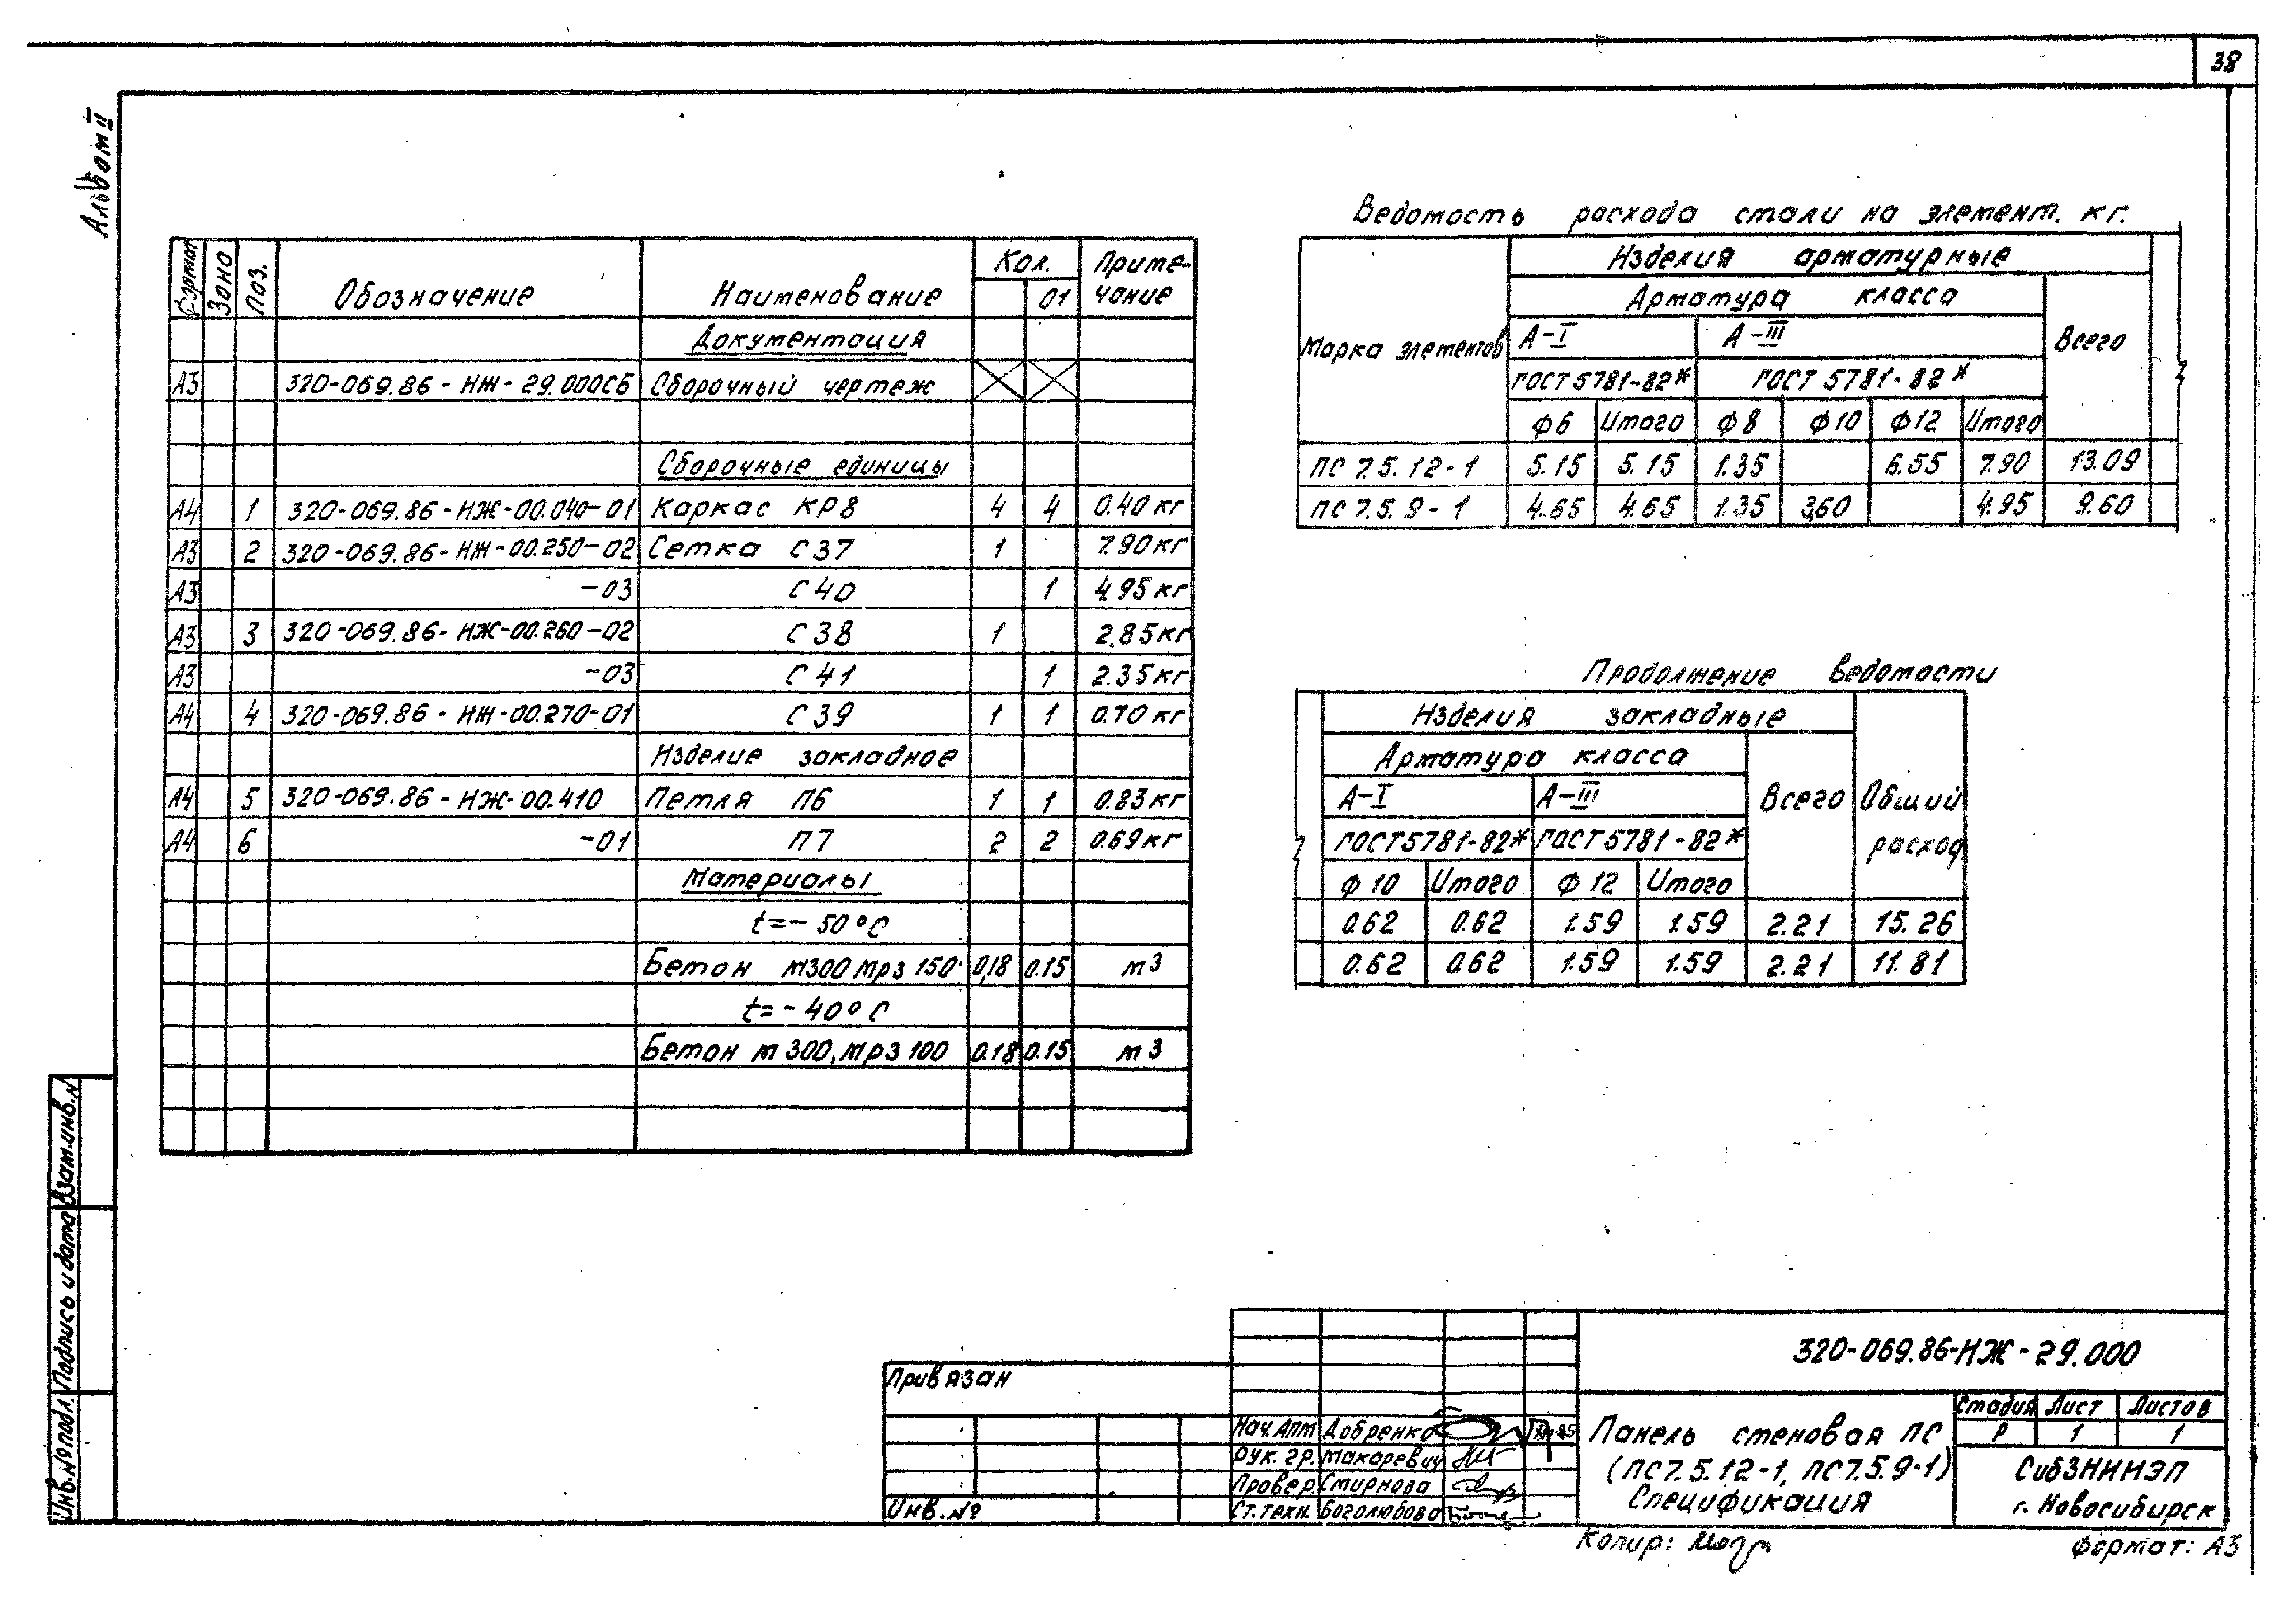 38
Альбом II
Формат Зона Поз. Обозначение Наименование Кол. Приме-
01 чание
Документация
А3 320-069.86-НЖ-29.000СБ Сборочный чертеж
Сборочные единицы
А4 1 320-069.86-НЖ-00.040-01 Каркас КР8 4 4 0.40 кг
А3 2 320-069.86-НЖ-00.250-02 Сетка С37 1 7.90 кг
А3 -03 С40 1 4.95 кг
А3 3 320-069.86-НЖ-00.260-02 С38 1 2.85 кг
А3 -03 С41 1 2.35 кг
А4 4 320-069.86-НЖ-00.270-01 С39 1 1 0.70 кг
Изделие закладное
А4 5 320-069.86-НЖ-00.410 Петля П6 1 1 0.83 кг
А4 6 -01 П7 2 2 0.69 кг
Материалы
t=-50°С
Бетон М300 Мрз 150 0,18 0.15 м3
t=-40°С
Бетон М300, Мрз 100 0.18 0.15 м3
Ведомость расхода стали на элемент. кг.
Марка элементов Изделия арматурные
Арматура класса Всего
А-I А-III
ГОСТ 5781-82* ГОСТ 5781-82*
Ф6 Итого Ф8 Ф10 Ф12 Итого
ПС 7.5.12-1 5.15 5.15 1.35 6.55 7.90 13.09
ПС 7.5.9-1 4.65 4.65 1.35 3,60 4.95 9.60
Продолжение ведомости
Изделия закладные Общий расход
Арматура класса Всего
А-I А-III
ГОСТ 5781-82* ГОСТ 5781-82*
Ф10 Итого Ф12 Итого
0.62 0.62 1.59 1.59 2.21 15.26
0.62 0.62 1.59 1.59 2.21 11.81
Инв.№ подл. Подпись и дата Взам.инв.№
Привязан
Инв.№
Нач.АПМ Добренко
Рук.гр. Макаревич
Провер. Смирнова
Ст.техн. Боголюбова
320-069.86-НЖ-29.000
Панель стеновая ПС
(ПС7.5.12-1, ПС7.5.9-1)
Спецификация
Стадия Лист Листов
Р 1 1
СибЗНИИЭП
г. Новосибирск
Копир:
Формат: А3